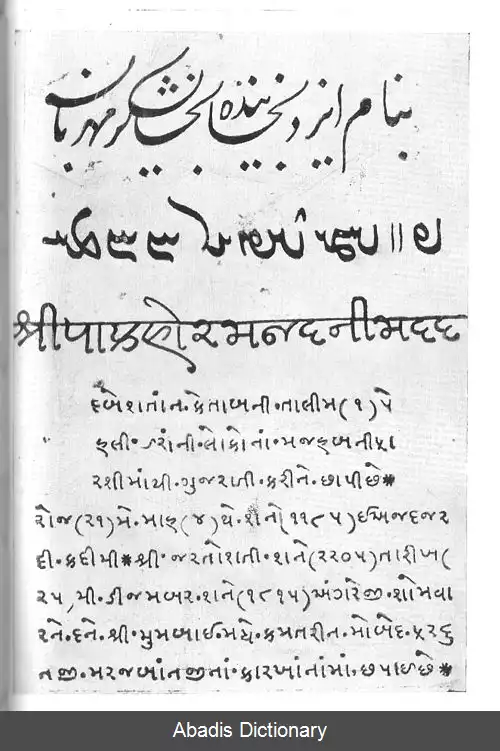 بنام ایزد بخشاینده بخشایشگر مهربان
શ્રીપાકહોરમજદનીમદદ
દબેશતાંન·કેતાબની·તાલીમ(૧)પે
હલી·ઈરાંની·લોકોનાં·મજહબનીફા
રશીમાંથી·ગુજરાતી·કરીને·છાપીછે*
રોજ(૨૧)મે·માહ(૪)થે·શંને(૧૧૮૫)ઈઅજદજર
દી·કદીમી*શ્રી·જરતોશતી·શને(૨૨૦૫)તારીખ(
૨૫)મી·ડીજમબર·શને(૧૮૧૫)અંગરેજી·શોમવા
રને·દને·શ્રી·મુમબાઈ·મધે·કમતરીન·મોબેદ·ફરદુ
નજી·મરજબાંનજીનાં·કારખાંનાંમાં·છપાઈછે*
Abadis Dictionary